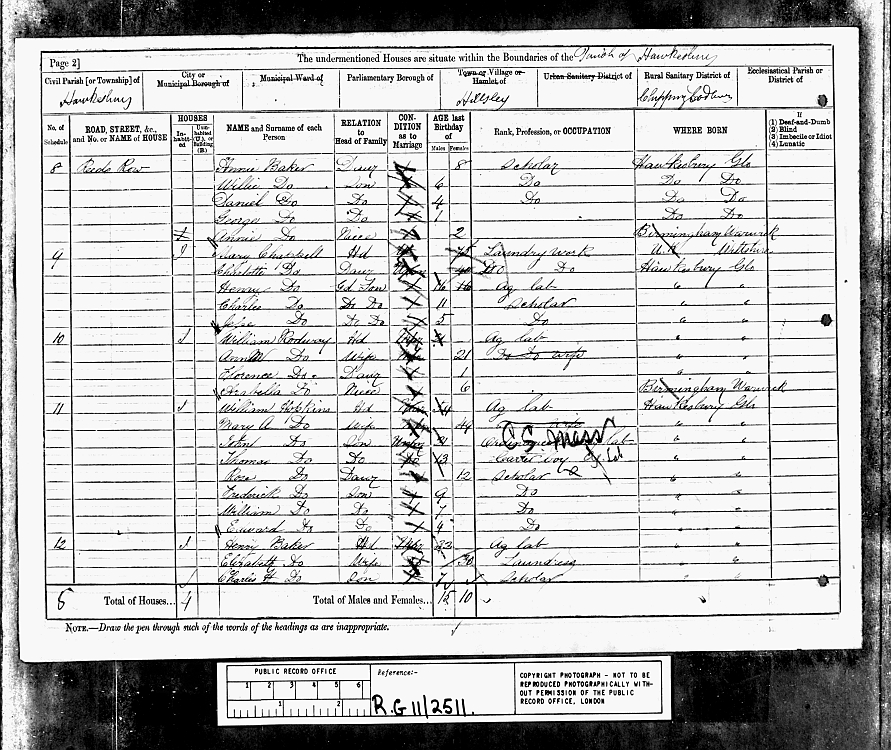 Page 2]
The undermentioned Houses are situate within the Boundaries of the Parish of Hawkesbury
Civil Parish [or Township] of
City or Municipal Borough of
Municipal Ward of
Parliamentary Borough of
Town or Village or Hamlet of
Urban Sanitary District of
Rural Sanitary District of
Ecclesiastical Parish or District of
Hawkesbury Hillsley Chipping Sodbury
No. of Schedule
ROAD, STREET, &c., and No. or NAME of HOUSE
HOUSES
In-habited
Uninhabited (U.), or Building (B.)
NAME and Surname of each Person
RELATION to Head of Family
CONDITION as to Marriage
AGE last Birthday of
Males Females
Rank, Profession, or OCCUPATION
WHERE BORN
If
(1) Deaf-and-Dumb
(2) Blind
(3) Imbecile or Idiot
(4) Lunatic
8 Reeds Row Annie Baker Daur 8 Scholar Hawkesbury Glo
Willie Do Son 6 Do Do Do
Daniel Do Do 4 Do Do Do
George Do Do 1 Do Do
Annie Do Niece 2 Birmingham Warwick
9 1 Mary Hd Laundry work Wiltshire
Charlotte Do Daur Do Do Hawkesbury Glo
Henry Do Gd Son 16 Ag lab " "
Charles Do Do Do 11 Scholar " "
Do Do Do 5 Do " "
10 1 William Rodway Hd Ag lab " "
Do Wife 21 Do Do wife " "
Florence Do Daur 1 " "
Arabella Do Niece 6 Birmingham Warwick
11 1 William Hopkins Hd Ag lab Hawkesbury Glo
Mary A Do Wife 44 wife " "
Do Son lab " "
Thomas Do Do 13 boy " "
Rose Do Daur 12 Scholar " "
Frederick Do Son 9 Do " "
William Do Do 7 Do " "
Edward Do Do 4 Do " "
12 1 Henry Baker Hd 32 Ag lab " "
Elizabeth Do Wife 30 Laundress " "
Charles H Do Son 7 Scholar " "
5 Total of Houses... 4 Total of Males and Females... 15 10
NOTE.—Draw the pen through such of the words of the headings as are inappropriate.
PUBLIC RECORD OFFICE
1 2 3 4 5 6
1 2
Reference:-
R.G 11/2511.
COPYRIGHT PHOTOGRAPH - NOT TO BE
REPRODUCED PHOTOGRAPHICALLY WITH-
OUT PERMISSION OF THE PUBLIC
RECORD OFFICE, LONDON